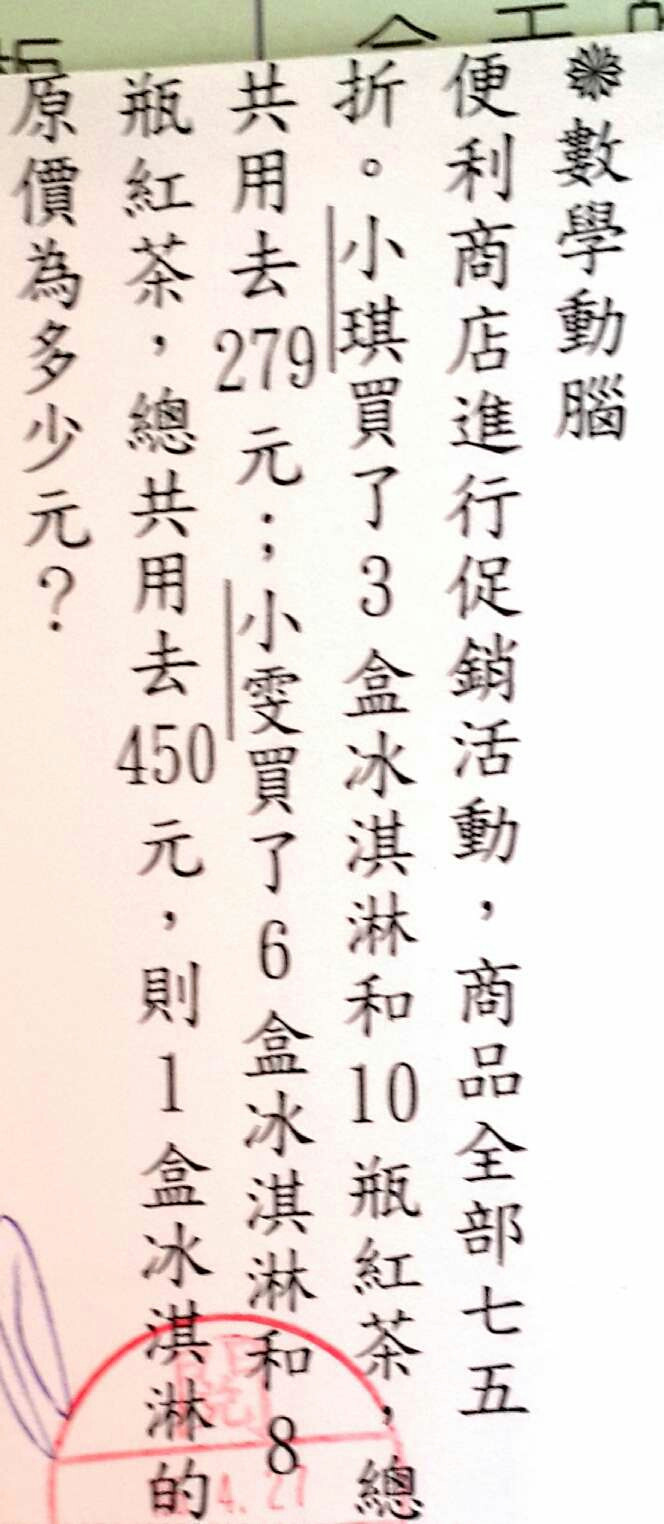 ❋數學動腦
便利商店進行促銷活動，商品全部七五
折。小琪買了3盒冰淇淋和10瓶紅茶，總
共用去279元；小雯買了6盒冰淇淋和8
瓶紅茶，總共用去450元，則1盒冰淇淋的
原價為多少元？
4.27